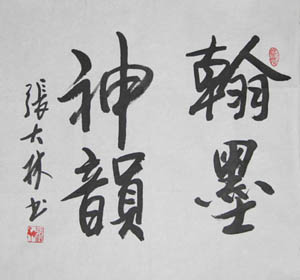 翰墨
神韻
張大林書